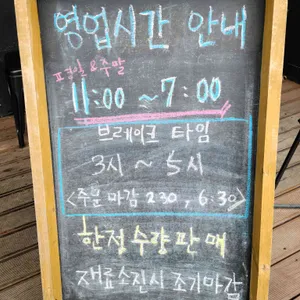 영업시간 안내
평일 & 주말
11:00 ~ 7:00
브레이크 타임
3시 ~ 5시
<주문 마감 2:30, 6:30>
한정수량판매
재료소진시 조기마감